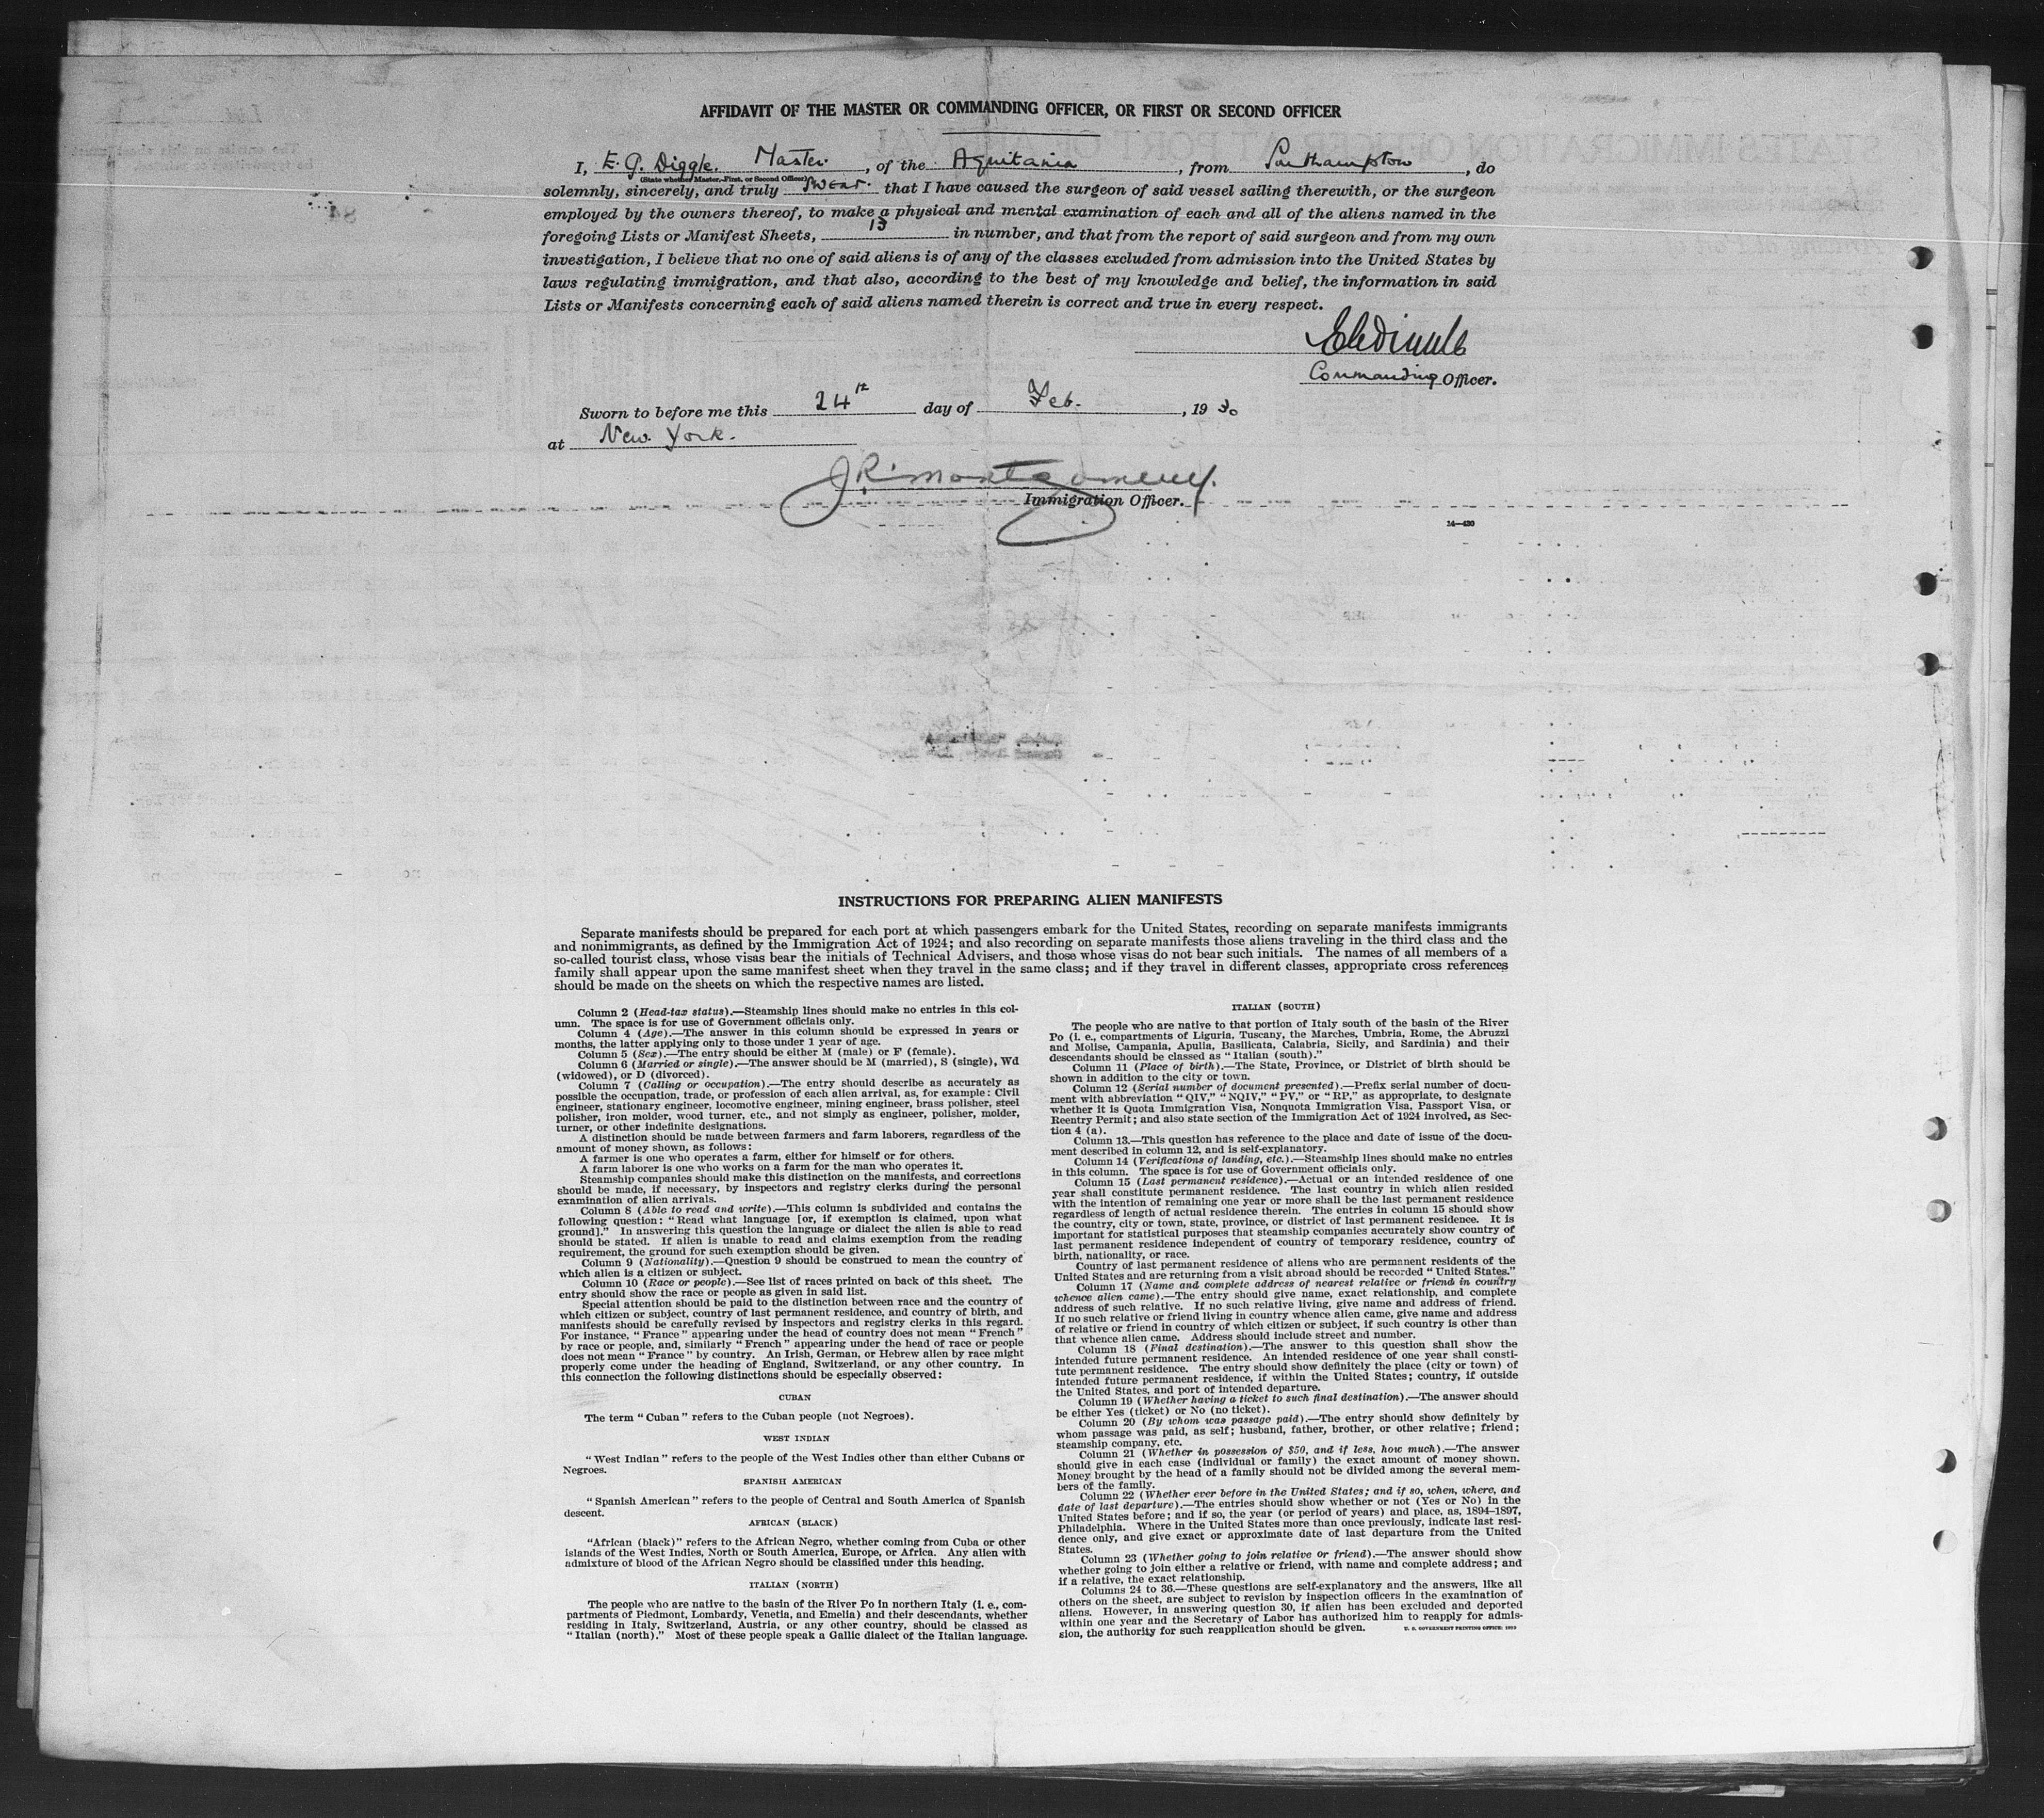 AFFIDAVIT OF THE MASTER OR COMMANDING OFFICER, OR FIRST OR SECOND OFFICER
I, E. G. Diggle. Master, of the Aquitania, from Southampton, do
(State whether Master, First, or Second Officer)
solemnly, sincerely, and truly swear. that I have caused the surgeon of said vessel sailing therewith, or the surgeon
employed by the owners thereof, to make a physical and mental examination of each and all of the aliens named in the
foregoing Lists or Manifest Sheets, 13 in number, and that from the report of said surgeon and from my own
investigation, I believe that no one of said aliens is of any of the classes excluded from admission into the United States by
laws regulating immigration, and that also, according to the best of my knowledge and belief, the information in said
Lists or Manifests concerning each of said aliens named therein is correct and true in every respect.
Commanding Officer.
Sworn to before me this 24th day of Feb., 1930
at New York.
J R Montgomery.
Immigration Officer.
14—430
INSTRUCTIONS FOR PREPARING ALIEN MANIFESTS
Separate manifests should be prepared for each port at which passengers embark for the United States, recording on separate manifests immigrants
and nonimmigrants, as defined by the Immigration Act of 1924; and also recording on separate manifests those aliens traveling in the third class and the
so-called tourist class, whose visas bear the initials of Technical Advisers, and those whose visas do not bear such initials. The names of all members of a
family shall appear upon the same manifest sheet when they travel in the same class; and if they travel in different classes, appropriate cross references
should be made on the sheets on which the respective names are listed.
Column 2 (Head-tax status).—Steamship lines should make no entries in this col-
umn. The space is for use of Government officials only.
Column 4 (Age).—The answer in this column should be expressed in years or
months, the latter applying only to those under 1 year of age.
Column 5 (Sex).—The entry should be either M (male) or F (female).
Column 6 (Married or single).—The answer should be M (married), S (single), Wd
(widowed), or D (divorced).
Column 7 (Calling or occupation).—The entry should describe as accurately as
possible the occupation, trade, or profession of each alien arrival, as, for example: Civil
engineer, stationary engineer, locomotive engineer, mining engineer, brass polisher, steel
polisher, iron molder, wood turner, etc., and not simply as engineer, polisher, molder,
turner, or other indefinite designations.
A distinction should be made between farmers and farm laborers, regardless of the
amount of money shown, as follows:
A farmer is one who operates a farm, either for himself or for others.
A farm laborer is one who works on a farm for the man who operates it.
Steamship companies should make this distinction on the manifests, and corrections
should be made, if necessary, by inspectors and registry clerks during the personal
examination of alien arrivals.
Column 8 (Able to read and write).—This column is subdivided and contains the
following question: "Read what language [or, if exemption is claimed, upon what
ground]." In answering this question the language or dialect the alien is able to read
should be stated. If alien is unable to read and claims exemption from the reading
requirement, the ground for such exemption should be given.
Column 9 (Nationality).—Question 9 should be construed to mean the country of
which alien is a citizen or subject.
Column 10 (Race or people).—See list of races printed on back of this sheet. The
entry should show the race or people as given in said list.
Special attention should be paid to the distinction between race and the country of
which citizen or subject, country of last permanent residence, and country of birth, and
manifests should be carefully revised by inspectors and registry clerks in this regard.
For instance, "France" appearing under the head of country does not mean "French"
by race or people, and, similarly "French" appearing under the head of race or people
does not mean "France" by country. An Irish, German, or Hebrew alien by race might
properly come under the heading of England, Switzerland, or any other country. In
this connection the following distinctions should be especially observed:
CUBAN
The term "Cuban" refers to the Cuban people (not Negroes).
WEST INDIAN
"West Indian" refers to the people of the West Indies other than either Cubans or
Negroes.
SPANISH AMERICAN
"Spanish American" refers to the people of Central and South America of Spanish
descent.
AFRICAN (BLACK)
"African (black)" refers to the African Negro, whether coming from Cuba or other
islands of the West Indies, North or South America, Europe, or Africa. Any alien with
admixture of blood of the African Negro should be classified under this heading.
ITALIAN (NORTH)
The people who are native to the basin of the River Po in northern Italy (i. e., com-
partments of Piedmont, Lombardy, Venetia, and Emelia) and their descendants, whether
residing in Italy, Switzerland, Austria, or any other country, should be classed as
"Italian (north)." Most of these people speak a Gallic dialect of the Italian language.
ITALIAN (SOUTH)
The people who are native to that portion of Italy south of the basin of the River
Po (i. e., compartments of Liguria, Tuscany, the Marches, Umbria, Rome, the Abruzzi
and Molise, Campania, Apulia, Basilicata, Calabria, Sicily, and Sardinia) and their
descendants should be classed as "Italian (south)."
Column 11 (Place of birth).—The State, Province, or District of birth should be
shown in addition to the city or town.
Column 12 (Serial number of document presented).—Prefix serial number of docu-
ment with abbreviation "QIV," "NQIV," "PV," or "RP," as appropriate, to designate
whether it is Quota Immigration Visa, Nonquota Immigration Visa, Passport Visa, or
Reentry Permit; and also state section of the Immigration Act of 1924 involved, as Sec-
tion 4 (a).
Column 13.—This question has reference to the place and date of issue of the docu-
ment described in column 12, and is self-explanatory.
Column 14 (Verifications of landing, etc.).—Steamship lines should make no entries
in this column. The space is for use of Government officials only.
Column 15 (Last permanent residence).—Actual or an intended residence of one
year shall constitute permanent residence. The last country in which alien resided
with the intention of remaining one year or more shall be the last permanent residence
regardless of length of actual residence therein. The entries in column 15 should show
the country, city or town, state, province, or district of last permanent residence. It is
important for statistical purposes that steamship companies accurately show country of
last permanent residence independent of country of temporary residence, country of
birth, nationality, or race.
Country of last permanent residence of aliens who are permanent residents of the
United States and are returning from a visit abroad should be recorded "United States."
Column 17 (Name and complete address of nearest relative or friend in country
whence alien came).—The entry should give name, exact relationship, and complete
address of such relative. If no such relative living, give name and address of friend.
If no such relative or friend living in country whence alien came, give name and address
of relative or friend in country of which citizen or subject, if such country is other than
that whence alien came. Address should include street and number.
Column 18 (Final destination).—The answer to this question shall show the
intended future permanent residence. An intended residence of one year shall consti-
tute permanent residence. The entry should show definitely the place (city or town) of
intended future permanent residence, if within the United States; country, if outside
the United States, and port of intended departure.
Column 19 (Whether having a ticket to such final destination).—The answer should
be either Yes (ticket) or No (no ticket).
Column 20 (By whom was passage paid).—The entry should show definitely by
whom passage was paid, as self; husband, father, brother, or other relative; friend;
steamship company, etc.
Column 21 (Whether in possession of $50, and if less, how much).—The answer
should give in each case (individual or family) the exact amount of money shown.
Money brought by the head of a family should not be divided among the several mem-
bers of the family.
Column 22 (Whether ever before in the United States; and if so, when, where, and
date of last departure).—The entries should show whether or not (Yes or No) in the
United States before; and if so, the year (or period of years) and place, as, 1894–1897,
Philadelphia. Where in the United States more than once previously, indicate last resi-
dence only, and give exact or approximate date of last departure from the United
States.
Column 23 (Whether going to join relative or friend).—The answer should show
whether going to join either a relative or friend, with name and complete address; and
if a relative, the exact relationship.
Columns 24 to 36.—These questions are self-explanatory and the answers, like all
others on the sheet, are subject to revision by inspection officers in the examination of
aliens. However, in answering question 30, if alien has been excluded and deported
within one year and the Secretary of Labor has authorized him to reapply for admis-
sion, the authority for such reapplication should be given.
U. S. GOVERNMENT PRINTING OFFICE: 1929